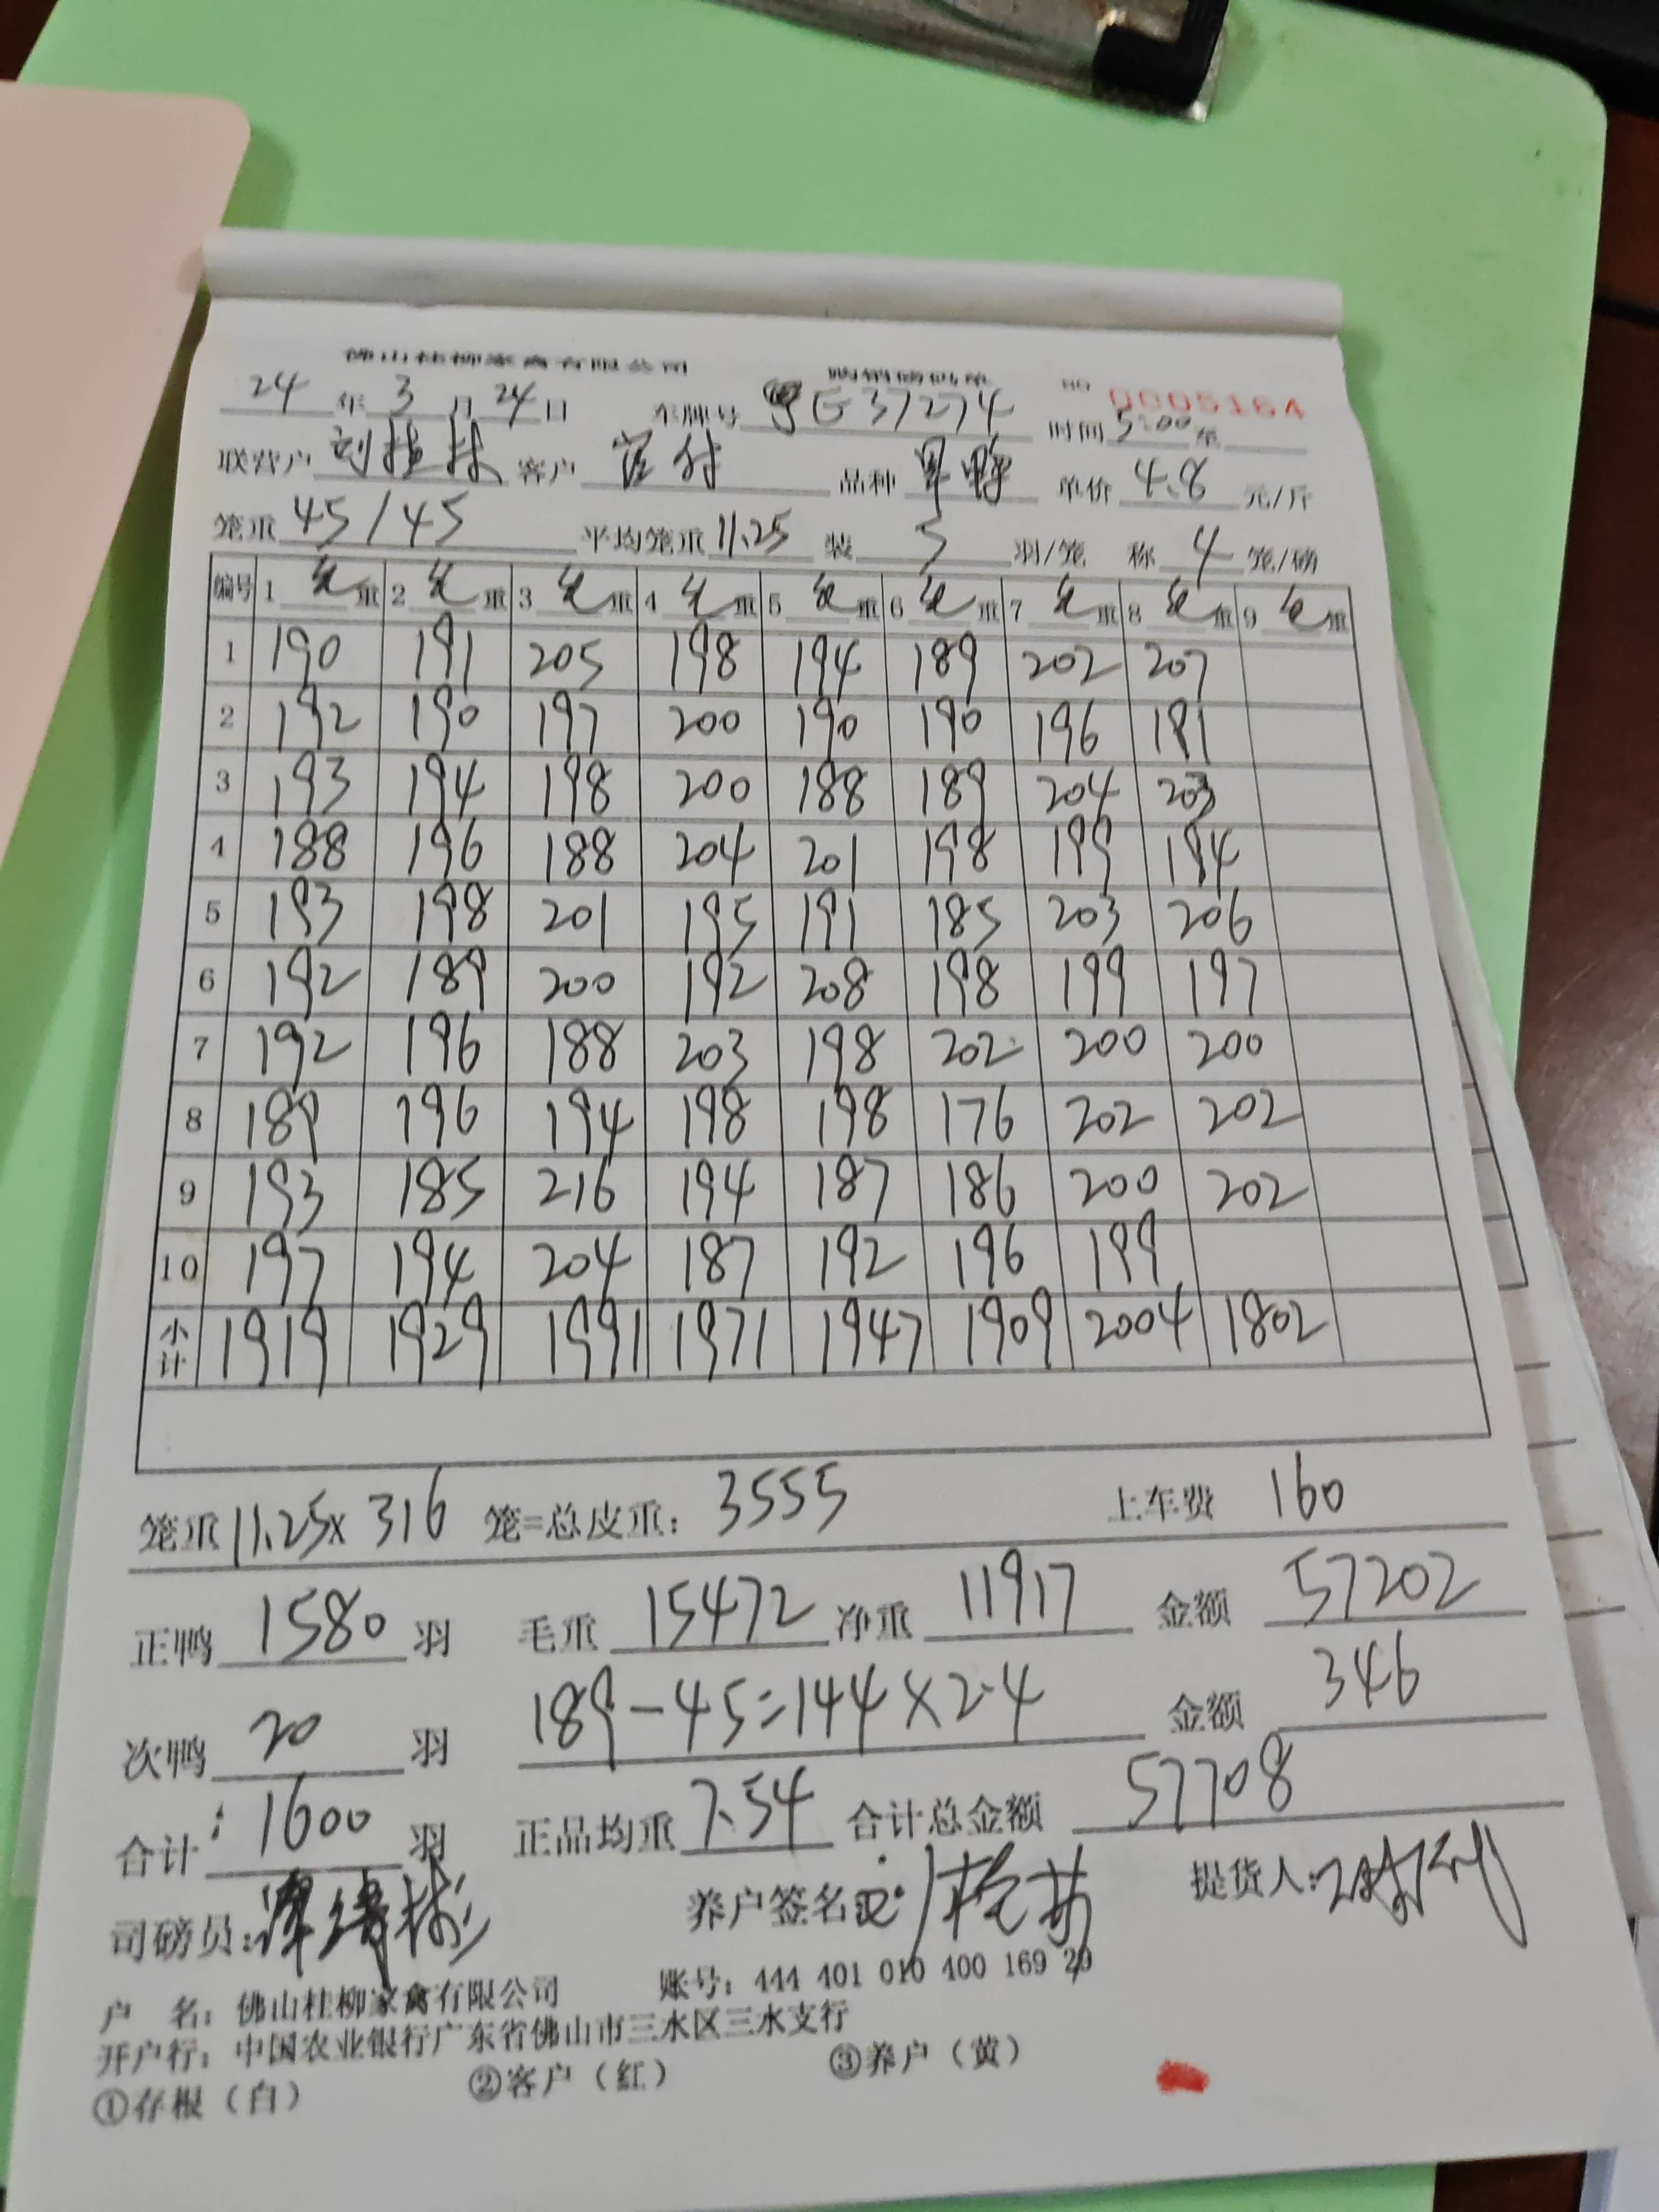 佛山桂柳家禽有限公司 购销磅码单 NO 0005164
24 年 3 月 24 日 车牌号 粤E37274 时间 5:00 至
联营户 刘桂林 客户 品种 单价 4.8 元/斤
笼重 45/45 平均笼重 11.25 装 5 羽/笼 称 4 笼/磅
编号 1 毛重 2 毛重 3 毛重 4 毛重 5 毛重 6 毛重 7 毛重 8 毛重 9 毛重
1 190 191 205 198 194 189 202 207
2 192 190 197 200 190 190 196 191
3 193 194 198 200 188 189 204 203
4 188 196 188 204 201 198 199 194
5 193 198 201 195 191 185 203 206
6 192 189 200 192 208 198 199 197
7 192 196 188 203 198 202 200 200
8 189 196 194 198 198 176 202 202
9 193 185 216 194 187 186 200 202
10 197 194 204 187 192 196 199
小计 1919 1929 1991 1971 1947 1909 2004 1802
笼重 11.25x 316 笼=总皮重: 3555 上车费 160
正鸭 1580 羽 毛重 15472 净重 11917 金额 57202
次鸭 20 羽 189-45=144×2.4 金额 346
合计: 1600 羽 正品均重 7.54 合计总金额 57708
司磅员: 养户签名: 提货人:
户 名: 佛山桂柳家禽有限公司 账号: 444 401 010 400 169 29
开户行: 中国农业银行广东省佛山市三水区三水支行
①存根(白) ②客户(红) ③养户(黄)